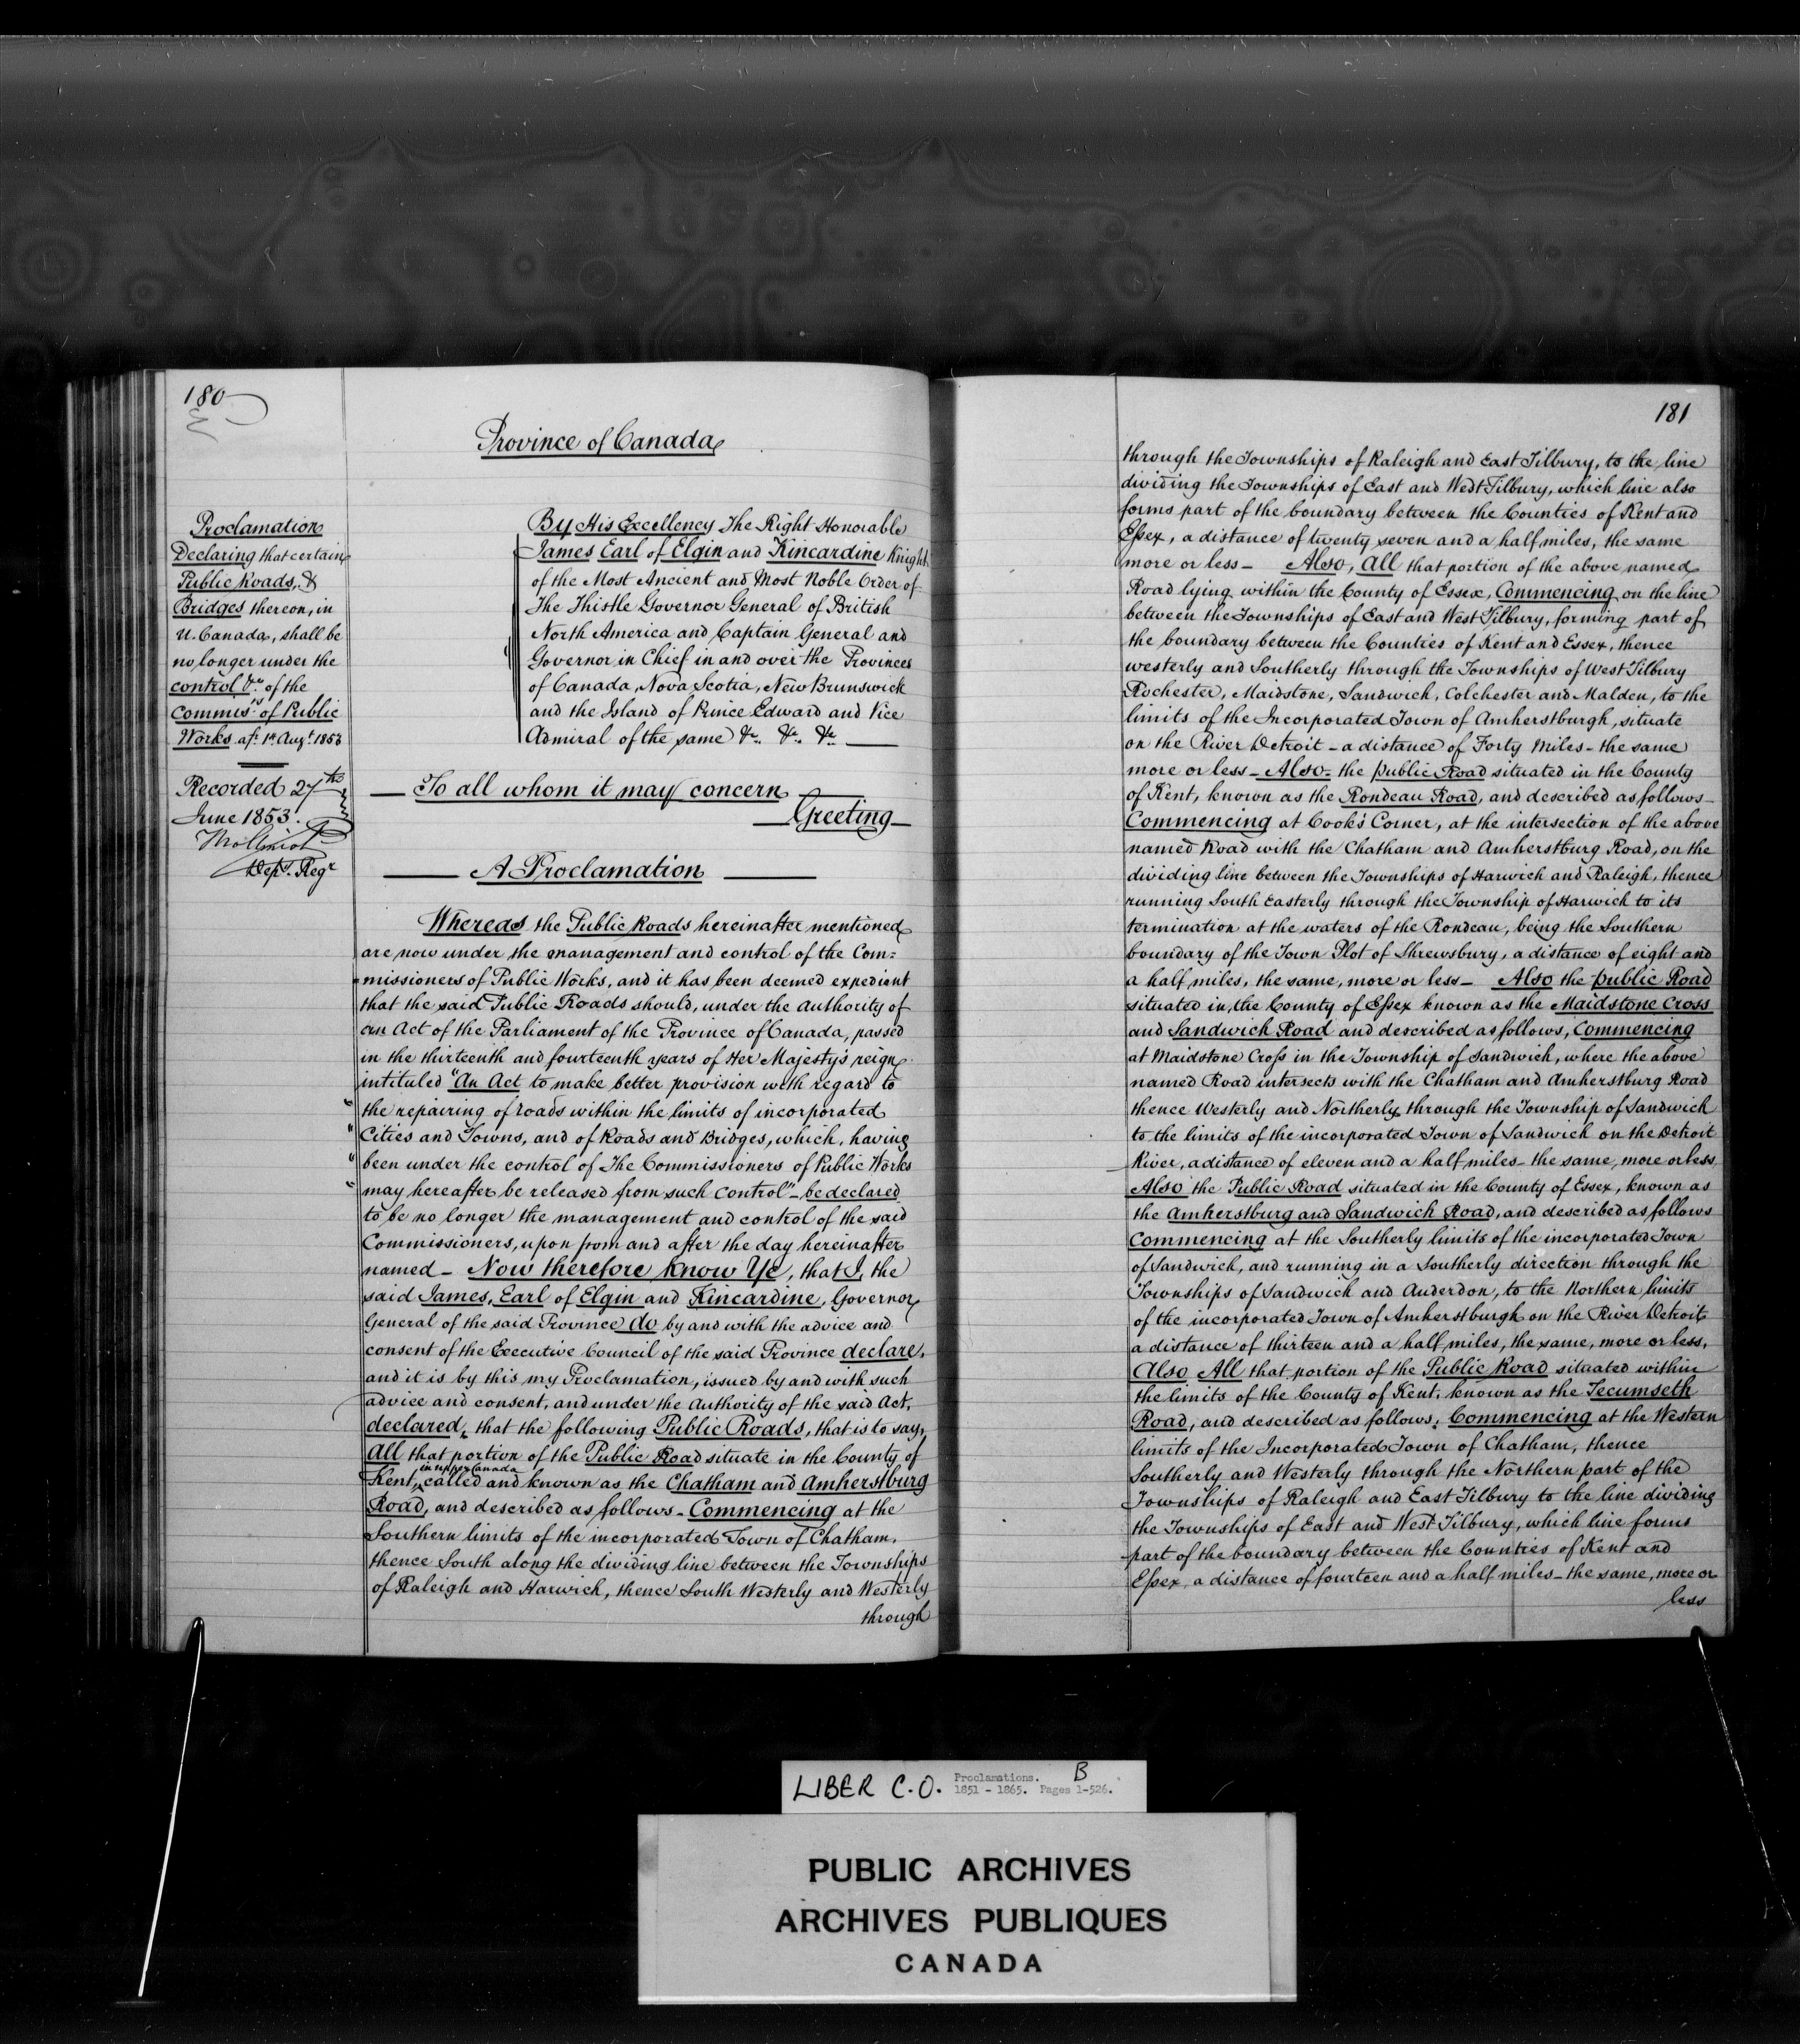 180
Province of Canada
Proclamation
Declaring that certain
Public Roads, &
Bridges thereon, in
U. Canada, shall be
no longer under the
control &c of the
Commisrs of Public
Works aft 1st Augt 1853
Recorded 27th
June 1853.
Depy. Regr
By His Excellency The Right Honorable
James Earl of Elgin and Kincardine Knight
of the Most Ancient and Most Noble Order of
The Thistle Governor General of British
North America and Captain General and
Governor in Chief in and over the Provinces
of Canada, Nova Scotia, New Brunswick
and the Island of Prince Edward and Vice
Admiral of the same &c. &c. &c.
To all whom it may concern
Greeting
A Proclamation
Whereas the Public Roads hereinafter mentioned
are now under the management and control of the Com=
=missioners of Public Works, and it has been deemed expedient
that the said Public Roads should, under the authority of
an Act of the Parliament of the Province of Canada, passed
in the thirteenth and fourteenth years of Her Majesty's reign
intituled "An Act to make better provision with regard to
" the repairing of roads within the limits of incorporated
" Cities and Towns, and of Roads and Bridges, which, having
" been under the control of The Commissioners of Public Works
" may hereafter be released from such control" - be declared
to be no longer the management and control of the said
Commissioners, upon from and after the day hereinafter
named - Now therefore Know Ye, that I, the
said James, Earl of Elgin and Kincardine, Governor
General of the said Province do by and with the advice and
consent of the Executive Council of the said Province declare,
and it is by this my Proclamation, issued by and with such
advice and consent, and under the authority of the said Act,
declared, that the following Public Roads, that is to say,
All that portion of the Public Road situate in the County of
Kent, in Upper Canada called and known as the Chatham and Amherstburg
Road, and described as follows - Commencing at the
Southern limits of the incorporated Town of Chatham,
thence South along the dividing line between the Townships
of Raleigh and Harwich, thence South Westerly and Westerly
through
181
through the Townships of Raleigh and East Tilbury, to the line
dividing the Townships of East and West Tilbury, which line also
forms part of the boundary between the Counties of Kent and
Essex, a distance of twenty seven and a half miles, the same
more or less - Also, All that portion of the above named
Road lying within the County of Essex, Commencing on the line
between the Townships of East and West Tilbury, forming part of
the boundary between the Counties of Kent and Essex, thence
westerly and Southerly through the Townships of West Tilbury
Rochester, Maidstone, Sandwich, Colchester and Malden, to the
limits of the Incorporated Town of Amherstburgh, situate
on the River Detroit - a distance of Forty Miles - the same
more or less - Also - the public Road situated in the County
of Kent, known as the Rondeau Road, and described as follows -
Commencing at Cook's Corner, at the intersection of the above
named Road with the Chatham and Amherstburg Road, on the
dividing line between the Townships of Harwich and Raleigh, thence
running South Easterly through the Township of Harwich to its
termination at the waters of the Rondeau, being the Southern
boundary of the Town Plot of Shrewsbury, a distance of eight and
a half miles, the same, more or less - Also the public Road
situated in, the County of Essex known as the Maidstone Cross
and Sandwich Road and described as follows, Commencing
at Maidstone Cross in the Township of Sandwich, where the above
named Road intersects with the Chatham and Amherstburg Road
thence Westerly and Northerly through the Township of Sandwich
to the limits of the incorporated Town of Sandwich on the Detroit
River, a distance of eleven and a half miles - the same, more or less
Also the Public Road situated in the County of Essex, known as
the Amherstburg and Sandwich Road, and described as follows
Commencing at the Southerly limits of the incorporated Town
of Sandwich, and running in a Southerly direction through the
Townships of Sandwich and Anderdon, to the Northern limits
of the incorporated Town of Amherstburgh on the River Detroit
a distance of thirteen and a half miles, the same, more or less,
Also All that portion of the Public Road situated within
the limits of the County of Kent, known as the Tecumseth
Road, and described as follows, Commencing at the Western
limits of the Incorporated Town of Chatham, thence
Southerly and Westerly through the Northern part of the
Townships of Raleigh and East Tilbury to the line dividing
the Townships of East and West Tilbury, which line forms
part of the boundary between the Counties of Kent and
Essex, a distance of fourteen and a half miles - the same, more or
less
LIBER C.O. Proclamations. B
1851 - 1865. Pages 1-526.
PUBLIC ARCHIVES
ARCHIVES PUBLIQUES
CANADA